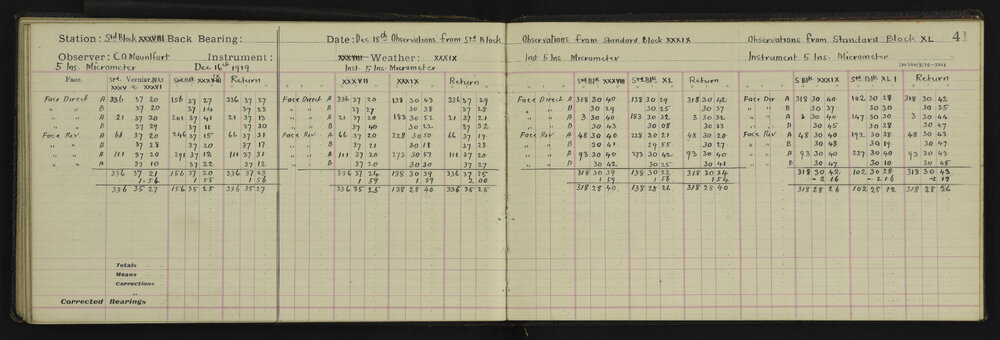 Station: Std Block XXXVIII Back Bearing:
Date: Dec 18th Observations from Std Block
Observations from Standard Block XXXIX
Observations from Standard Block XL 41
Observer: C.O. Mountfort Instrument:
XXXVIII Weather: XXXIX
5 Ins. Micrometer Dec 16th 1919
Inst 5 Ins. Micrometer
Inst 5 Ins Micrometer
Instrument 5 Ins. Micrometer
Face. Std. Vernier Blks. Std Blk XXXVIII Return
XXXV & XXXVI
XXXVIII XXXIX Return
S Blk XXXVIII Std Blk XL Return
S Blk XXXIX Std Blk XLI Return
Face Direct A 336 37 20 156 37 27 336 37 27
" " B 37 20 37 14 37 23
" " A 21 37 20 201 37 41 21 37 13
" " B 37 29 37 11 37 30
Face Rev A 66 37 20 246 37 15 66 37 31
" " B 37 28 37 20 37 17
" " A 111 37 20 291 37 12 111 37 31
" " B 37 10 37 22 37 12
336 37 21 156 37 20 336 37 23
1 56 1 55 1 56
336 35 27 156 35 25 336 35 27
Face Direct A 336 37 20 138 30 43 336 37 29
" " B 37 27 30 38 37 28
" " A 21 37 20 183 30 52 21 37 21
" " B 37 40 30 22 37 32
Face Rev A 66 37 20 228 30 50 66 37 19
" " B 37 21 30 18 37 28
" " A 111 37 20 273 30 57 111 37 20
" " B 37 30 30 30 37 27
336 37 24 138 30 39 336 37 25
1 59 1 59 2 00
336 35 25 138 28 40 336 35 25
Face Direct A 318 30 40 138 30 29 318 30 42
" " B 30 31 30 25 30 37
" " A 3 30 40 183 30 32 3 30 32
" " B 30 43 30 08 30 33
Face Rev A 48 30 40 228 30 21 48 30 23
" " B 30 41 29 55 30 27
" " A 93 30 40 273 30 42 93 30 40
" " B 30 42 30 25 30 41
318 30 39 138 30 22 318 30 34
1 59 1 56 1 54
318 28 40 138 28 26 318 28 40
Face Dir A 318 30 40 102 30 28 318 30 42
" " B 30 37 30 30 30 35
" " A 3 30 40 147 30 30 3 30 44
" " B 30 45 30 28 30 47
Face Rev A 48 30 40 192 30 38 48 30 43
" " B 30 48 30 19 30 43
" " A 93 30 40 237 30 40 93 30 43
" " B 30 47 30 10 30 45
318 30 42 102 30 28 318 30 43
- 2 16 - 2 16 - 2 17
318 28 26 102 28 12 318 28 26
Totals
Means
Corrections
"
Corrected Bearings